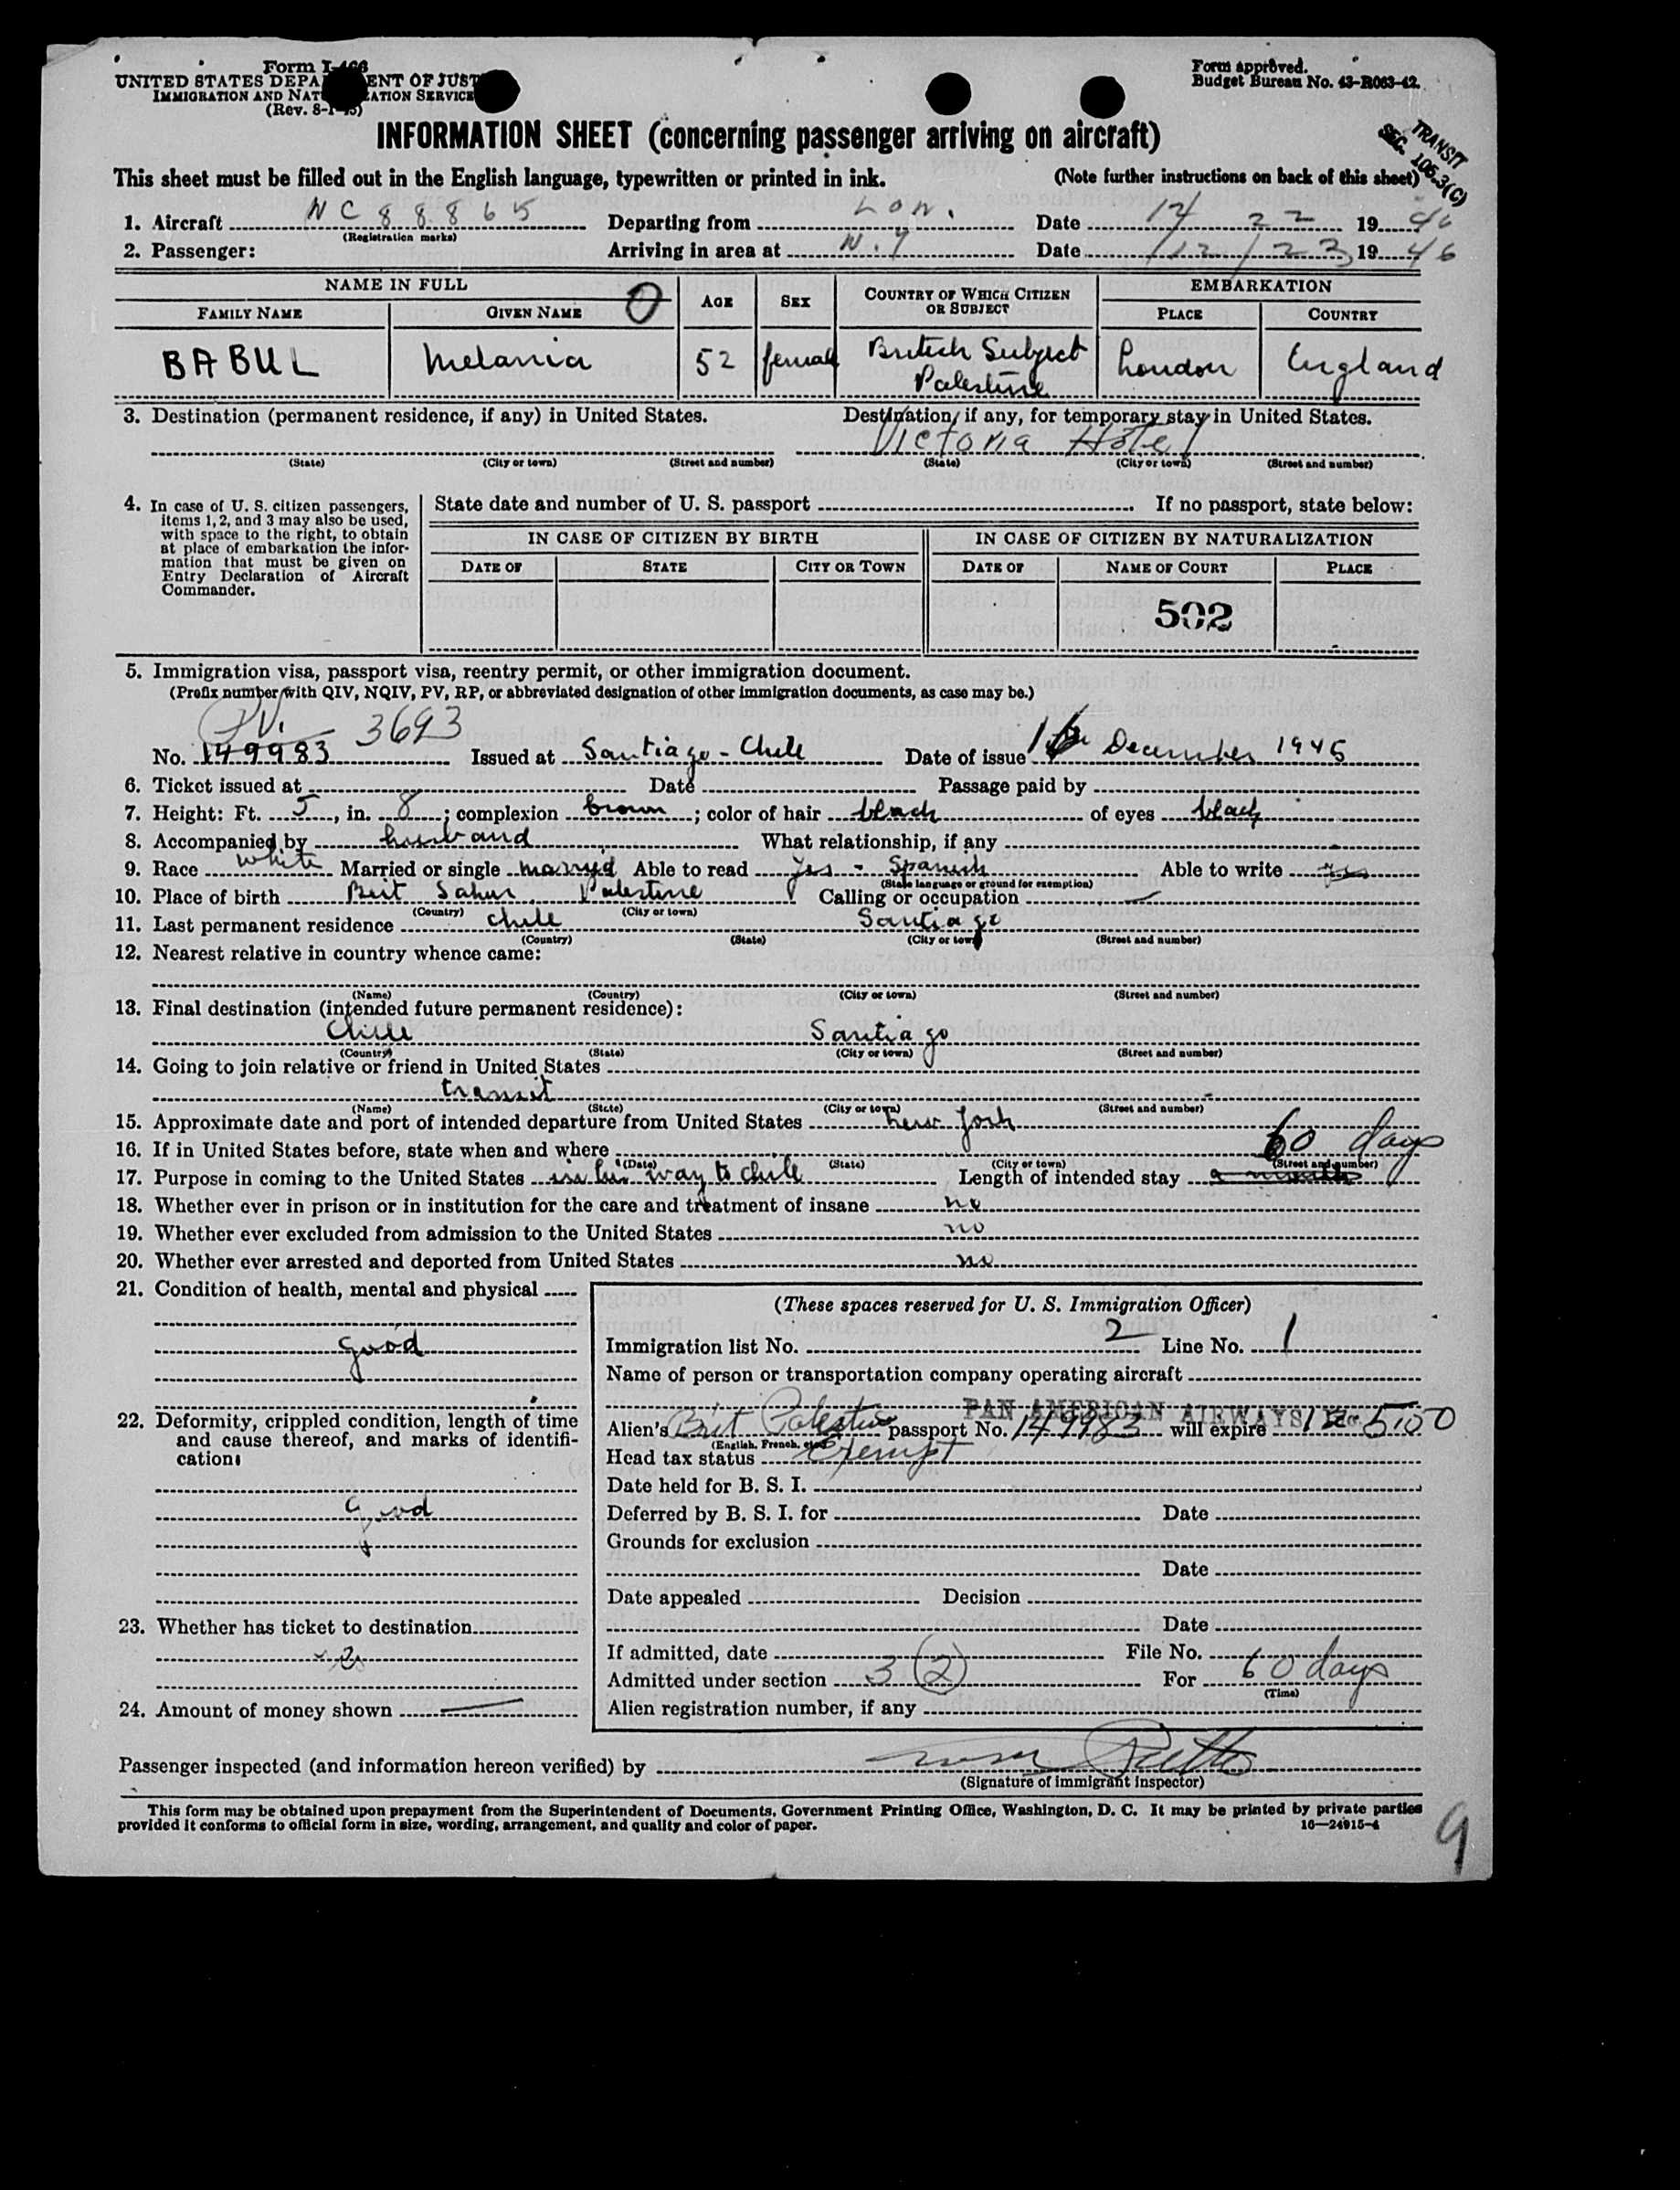 Form I-466
UNITED STATES DEPARTMENT OF JUSTICE
IMMIGRATION AND NATURALIZATION SERVICE
(Rev. 8-1-45)
Form approved.
Budget Bureau No. 43-R063-42.
TRANSIT
SEC. 105.3(C)
INFORMATION SHEET (concerning passenger arriving on aircraft)
This sheet must be filled out in the English language, typewritten or printed in ink. (Note further instructions on back of this sheet)
1. Aircraft NC 88865 Departing from Lon. Date 12 22 1946
(Registration marks)
2. Passenger: Arriving in area at N.Y Date 12/23 1946
NAME IN FULL O AGE SEX COUNTRY OF WHICH CITIZEN OR SUBJECT EMBARKATION
FAMILY NAME GIVEN NAME PLACE COUNTRY
BABUL Melania 52 female British Subject Palestine London England
3. Destination (permanent residence, if any) in United States. Destination, if any, for temporary stay in United States.
Victoria Hotel
(State) (City or town) (Street and number) (State) (City or town) (Street and number)
4. In case of U. S. citizen passengers, items 1, 2, and 3 may also be used, with space to the right, to obtain at place of embarkation the information that must be given on Entry Declaration of Aircraft Commander.
State date and number of U. S. passport If no passport, state below:
IN CASE OF CITIZEN BY BIRTH IN CASE OF CITIZEN BY NATURALIZATION
DATE OF STATE CITY OR TOWN DATE OF NAME OF COURT PLACE
502
5. Immigration visa, passport visa, reentry permit, or other immigration document.
(Prefix number with QIV, NQIV, PV, RP, or abbreviated designation of other immigration documents, as case may be.)
PV. 3693
No. 149983 Issued at Santiago - Chile Date of issue 16 December 1945
6. Ticket issued at Date Passage paid by
7. Height: Ft. 5, in. 8; complexion brown; color of hair black of eyes black
8. Accompanied by husband What relationship, if any
9. Race white Married or single married Able to read yes - Spanish Able to write yes
(State language or ground for exemption)
10. Place of birth Beit Sahur Palestine Calling or occupation
(Country) (City or town)
11. Last permanent residence Chile Santiago
(Country) (State) (City or town) (Street and number)
12. Nearest relative in country whence came:
(Name) (Country) (City or town) (Street and number)
13. Final destination (intended future permanent residence):
Chile Santiago
(Country) (State) (City or town) (Street and number)
14. Going to join relative or friend in United States
transit
(Name) (State) (City or town) (Street and number)
15. Approximate date and port of intended departure from United States New York
16. If in United States before, state when and where 60 days
(Date) (State) (City or town) (Street and number)
17. Purpose in coming to the United States in her way to Chile Length of intended stay a month
18. Whether ever in prison or in institution for the care and treatment of insane no
19. Whether ever excluded from admission to the United States no
20. Whether ever arrested and deported from United States no
21. Condition of health, mental and physical
good
22. Deformity, crippled condition, length of time and cause thereof, and marks of identification:
good
23. Whether has ticket to destination
24. Amount of money shown
(These spaces reserved for U. S. Immigration Officer)
Immigration list No. 2 Line No. 1
Name of person or transportation company operating aircraft
PAN AMERICAN AIRWAYS
Alien's Brit Palestine passport No. 149983 will expire 12-5-50
(English, French, etc.)
Head tax status Exempt
Date held for B. S. I.
Deferred by B. S. I. for Date
Grounds for exclusion
Date
Date appealed Decision
Date
If admitted, date File No.
Admitted under section 3 (2) For 60 days
(Time)
Alien registration number, if any
Passenger inspected (and information hereon verified) by
(Signature of immigrant inspector)
This form may be obtained upon prepayment from the Superintendent of Documents, Government Printing Office, Washington, D. C. It may be printed by private parties
provided it conforms to official form in size, wording, arrangement, and quality and color of paper. 16—24915-4
9